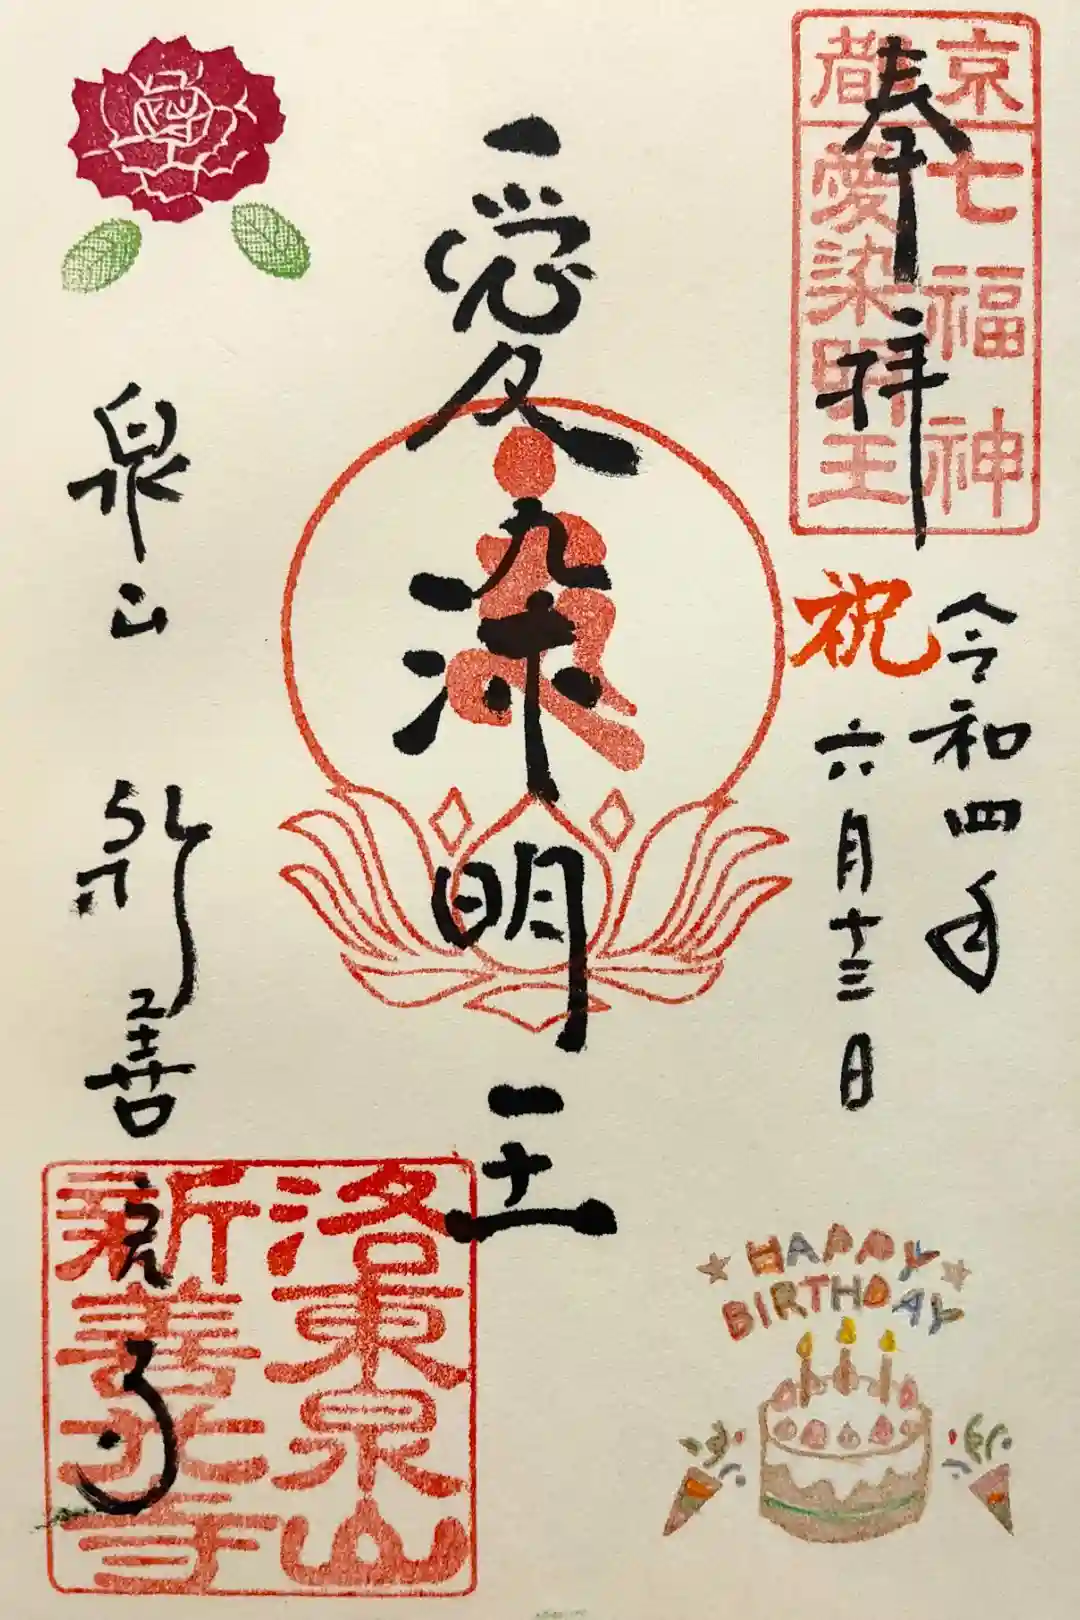 京七福神
都愛染明王
奉拝
祝
令和四年
六月十三日
愛染明王
泉山
新善光寺
洛東泉山
新善光寺
HAPPY
BIRTHDAY